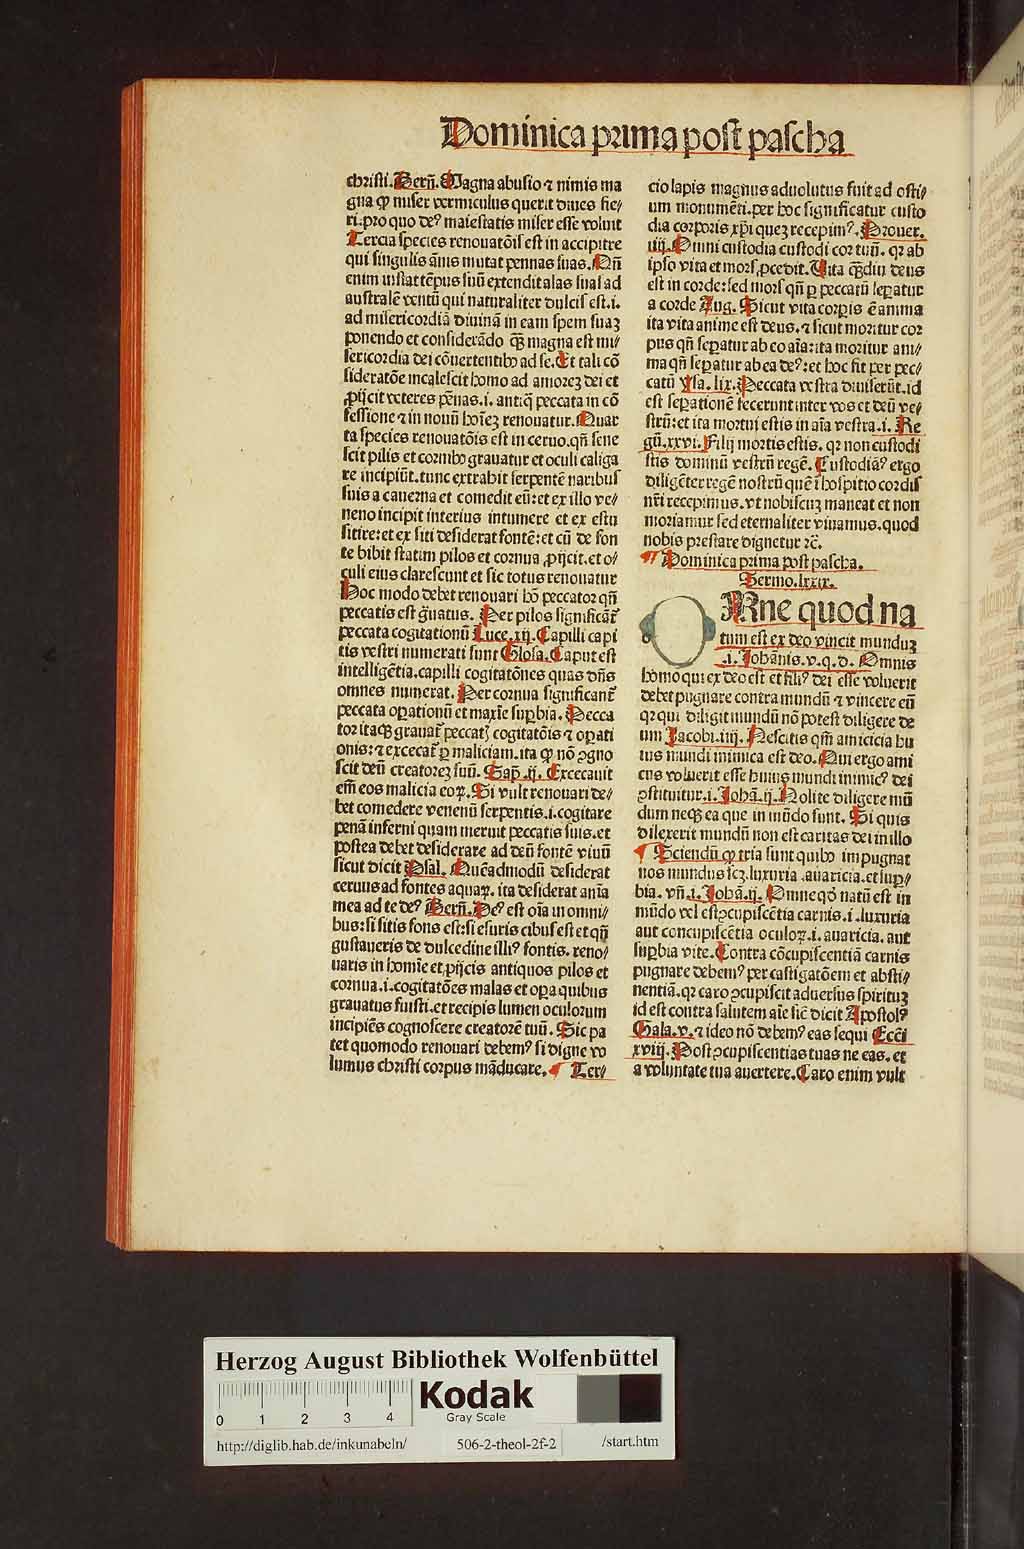 Dominica prima post pascha
christi. Berñ. Magna abusio ⁊ nimis ma
gna ꝙ miser vermiculus querit diues fie/
ri. pro quo deꝰ maiestatis miser esse voluit
Tercia species renouatōis est in accipitre
qui singulis ānis mutat pennas suas. Dū
enim instat tēpus suū extendit alas suas ad
australē ventū qui naturaliter dulcis est .i.
ad misericordiā diuinā in eam spem suaꝫ
ponendo et considerādo ꝙ̄ magna est mi/
sericordia dei cōuertentibꝰ ad se. Et tali cō
sideratōe incalescit homo ad amoreꝫ dei et
ꝓijcit veteres pēnas .i. antiq̄ peccata in cō
fessione ⁊ in nouū hoīeꝫ renouatur. Quar
ta species renouatōis est in ceruo. qñ sene
scit pilis et cornibꝰ grauatur et oculi caliga
re incipiūt. tunc extrahit serpentē naribus
suis a cauerna et comedit eū: et ex illo ve/
neno incipit interius intumere et ex estu
sitire: et ex siti desiderat fontē: et cū de fon
te bibit statim pilos et cornua ꝓijcit. et o/
culi eius clarescunt et sic totus renouatur
Hoc modo debet renouari hō peccator qñ
peccatis est g̈uatus. Per pilos significāt̄
peccata cogitationū Luce .xij. Capilli capi
tis vestri numerati sunt Glosa. Caput est
intelligētia. capilli cogitatōnes quas dn̄s
omnes numerat. Per cornua significant̄
peccata oꝑationū et maxīe suꝑbia. Pecca
tor itaqꝫ grauat̄ peccatꝭ cogitatōis ⁊ oꝑati
onis: ⁊ excecat̄ ꝑ maliciam. ita ꝙ nō ꝯgno
scit deū creatoreꝫ suū. Sap̄ .ij. Excecauit
em̄ eos malicia eoꝝ. Si vult renouari de/
bet comedere venenū serpentis .i. cogitare
penā inferni quam meruit peccatis suis. et
postea debet desiderare ad deū fontē viuū
sicut dicit Psal. Quēadmodū desiderat
ceruus ad fontes aquaꝝ. ita desiderat anīa
mea ad te deꝰ Berñ. Deꝰ est oīa in omni/
bus: si sitis fons est: si esuris cibus est et qñ
gustaueris de dulcedine illiꝰ fontis. reno/
uaris in homīe et ꝓijcis antiquos pilos et
cornua .i. cogitatōes malas et oꝑa quibus
grauatus fuisti. et recipis lumen oculorum
incipiēs cognoscere creatorē tuū. Sic pa
tet quomodo renouari debemꝰ si digne vo
lumus christi corpus māducare. ¶ Ter/
cio lapis magnus aduolutus fuit ad osti/
um monumēti. per hoc significatur custo
dia corporis xp̄i queꝫ recepimꝰ. Prouer.
iiij. Omni custodia custodi cor tuū. qꝛ ab
ipso vita et mors ꝓcedit. Vita qm̄diu deus
est in corde: sed mors qñ ꝑ peccatū seꝑatur
a corde Aug. Sicut vita corꝑis ē anima
ita vita anime est deus. ⁊ sicut moritur cor
pus qñ seꝑatur ab eo aīa: ita moritur ani/
ma qñ seꝑatur ab ea deꝰ: et hoc fit per pec/
catū Ysa. lix. Peccata vestra diuiserūt. id
est seꝑationē fecerunt inter vos et deū ve/
strū: et ita mortuj estis in aīa vestra .i. Re
gū. xxvi. Filij mortis estis. qꝛ non custodi
stis dominū vestrū regē. Custodiāꝰ ergo
diligēter regē nostrū quē ī hospitio cordis
nr̄i recepimus. vt nobiscuꝫ maneat et non
moriamur sed eternaliter viuamus. quod
nobis prestare dignetur ⁊c̄.
¶ Dominica prima post pascha.
Sermo. lxxix.
OMne quod na
tum est ex deo vincit munduꝫ
.i. Johānis. v. q. d. Omnis
homo qui ex deo est et filiꝰ dei esse voluerit
debet pugnare contra mundū ⁊ vincere eū
qꝛ qui diligit mundū nō potest diligere de
um Jacobi. iiij. Nescitis qm̄ amicicia hu
ius mundi inimica est deo. Qui ergo ami
cus voluerit esse huius mundi inimicꝰ dei
ꝯstituitur .i. Johā. ij. Nolite diligere mū
dum neqꝫ ea que in mūdo sunt. Si quis
dilexerit mundū non est caritas dei in illo
¶ Sciendū ꝙ tria sunt quibꝰ impugnat
nos mundus scꝫ. luxuria. auaricia. et suꝑ/
bia. vñ .i. Johā. ij. Omne qd̄ natū est in
mūdo vel est ꝯcupiscētia carnis .i. luxuria
aut concupiscētia oculoꝝ .i. auaricia. aut
suꝑbia vite. Contra cōcupiscentiā carnis
pugnare debemꝰ per castigatōem et absti/
nentiā. qꝛ caro ꝯcupiscit aduersus spirituꝫ
id est contra salutem aīe sic̄ dicit Apostolꝰ
Gala. v. ⁊ ideo nō debemꝰ eas sequi Ecc̄i
xviij. Post ꝯcupiscentias tuas ne eas. et
a voluntate tua auertere. Caro enim vult
Herzog August Bibliothek Wolfenbüttel
0 1 2 3 4
Kodak
Gray Scale
http://diglib.hab.de/inkunabeln/ 506-2-theol-2f-2 /start.htm